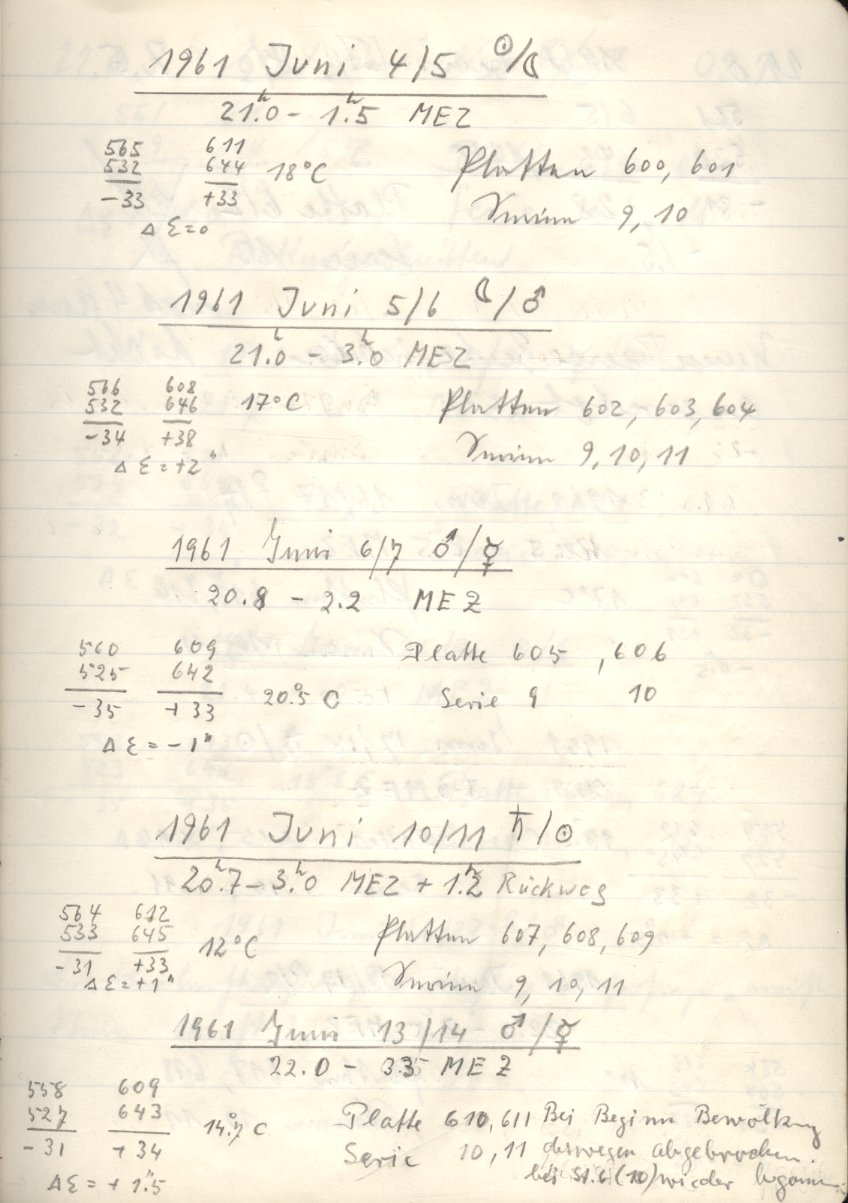 1961 Juni 4/5 ☉/☾
21ʰ.0 – 1ʰ.5 MEZ
565 611
532 644 18°C Platten 600, 601
-33 +33 Serien 9, 10
Δ ε = 0
1961 Juni 5/6 ☾/♂
21ʰ.0 – 3ʰ.0 MEZ
566 608
532 646 17°C Platten 602, 603, 604
-34 +38 Serien 9, 10, 11
Δ ε = +2"
1961 Juni 6/7 ♂/☿
20.8 – 2.2 MEZ
560 609 Platte 605, 606
525 642
-35 +33 20°.5 C Serie 9 10
Δ ε = -1"
1961 Juni 10/11 ♄/☉
20ʰ.7 – 3ʰ.0 MEZ + 1ʰ.2 Rückweg
564 612
533 645 12°C Platten 607, 608, 609
-31 +33 Serien 9, 10, 11
Δ ε = +1"
1961 Juni 13/14 ♂/☿
22.0 – 3.35 MEZ
558 609
527 643 14°.7 C Platte 610, 611 Bei Beginn Bewölkung
-31 +34 Serie 10, 11 deswegen abgebrochen.
Δ ε = +1".5 bei St. 6 (10) wieder begonnen